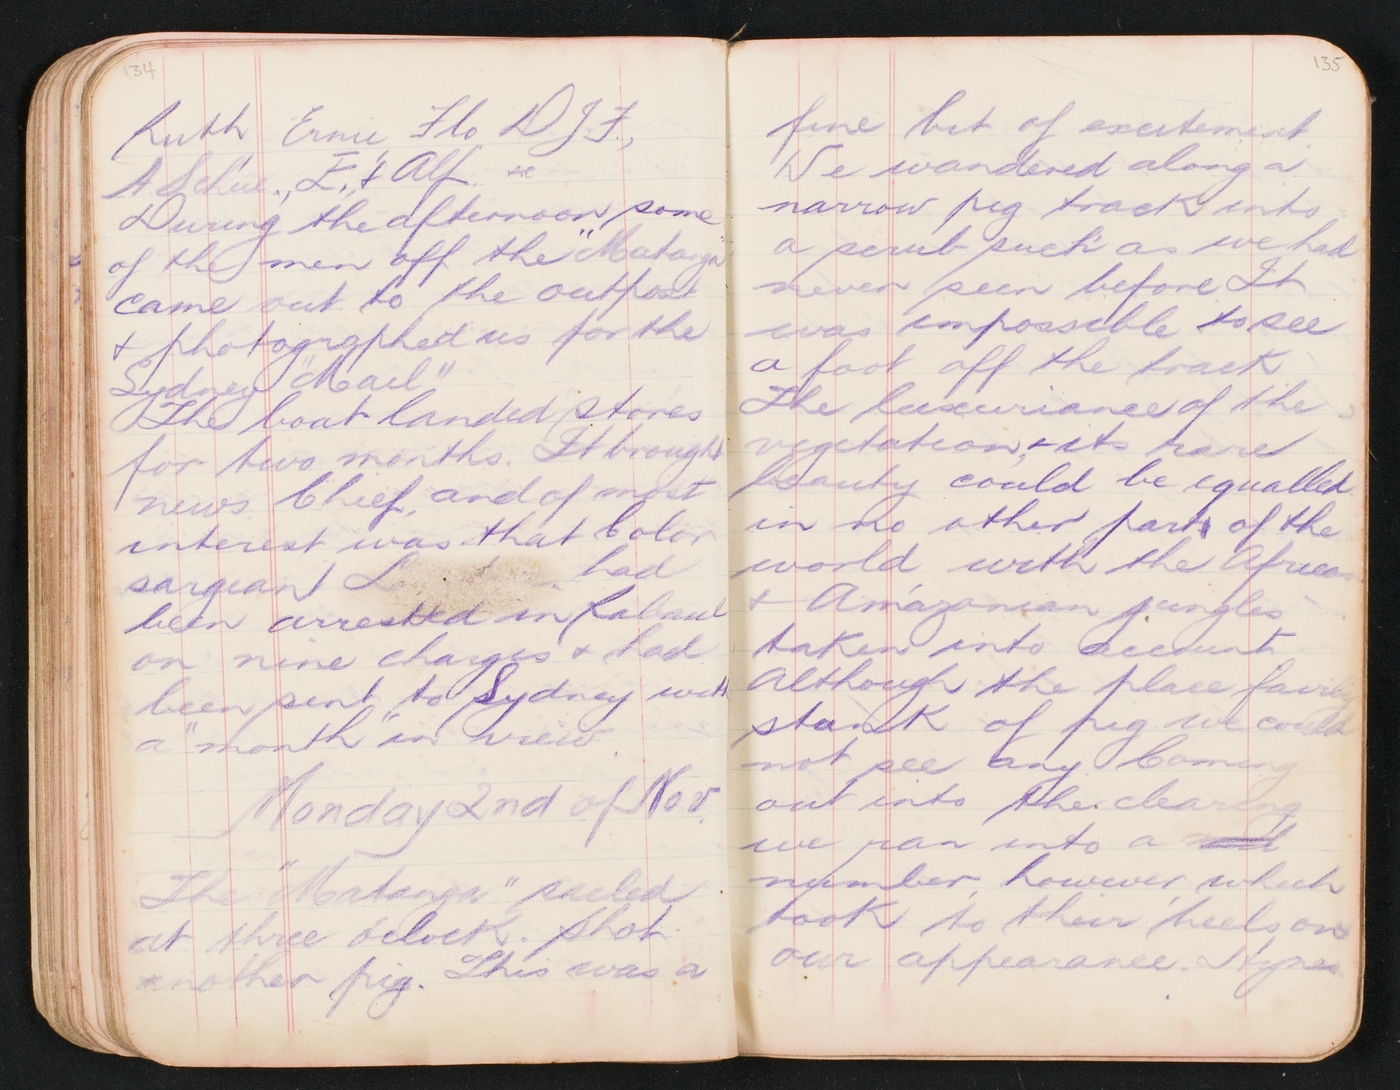 134
Ruth Ernie Flo D.J.F.,
A Schie., E. & Alf. &c
During the afternoon some
of the men off the "Matanga"
came out to the outpost
& photographed us for the
Sydney "Mail"
The boat landed stores
for two months. It brought
news Chief, and of most
interest was that Color
sargeant L had
been arrested in Rabaul
on nine charges & had
been sent to Sydney with
a "month" in view.
Monday 2nd of Nov.
The "Matanga" sailed
at three o'clock. Shot
another pig. This was a
135
fine bit of excitement.
We wandered along a
narrow pig track into
a scrub such as we had
never seen before It
was impossible to see
a foot off the track
The luxuriance of the
vegetation, & its rare
beauty could be equalled
in no other part of the
world, with the African
& Amazonian jungles
taken into account.
Although the place fairly
stank of pig we could
not see any Coming
out into the clearing
we ran into a
number, however, which
took to their heels on
our appearance. Hynes